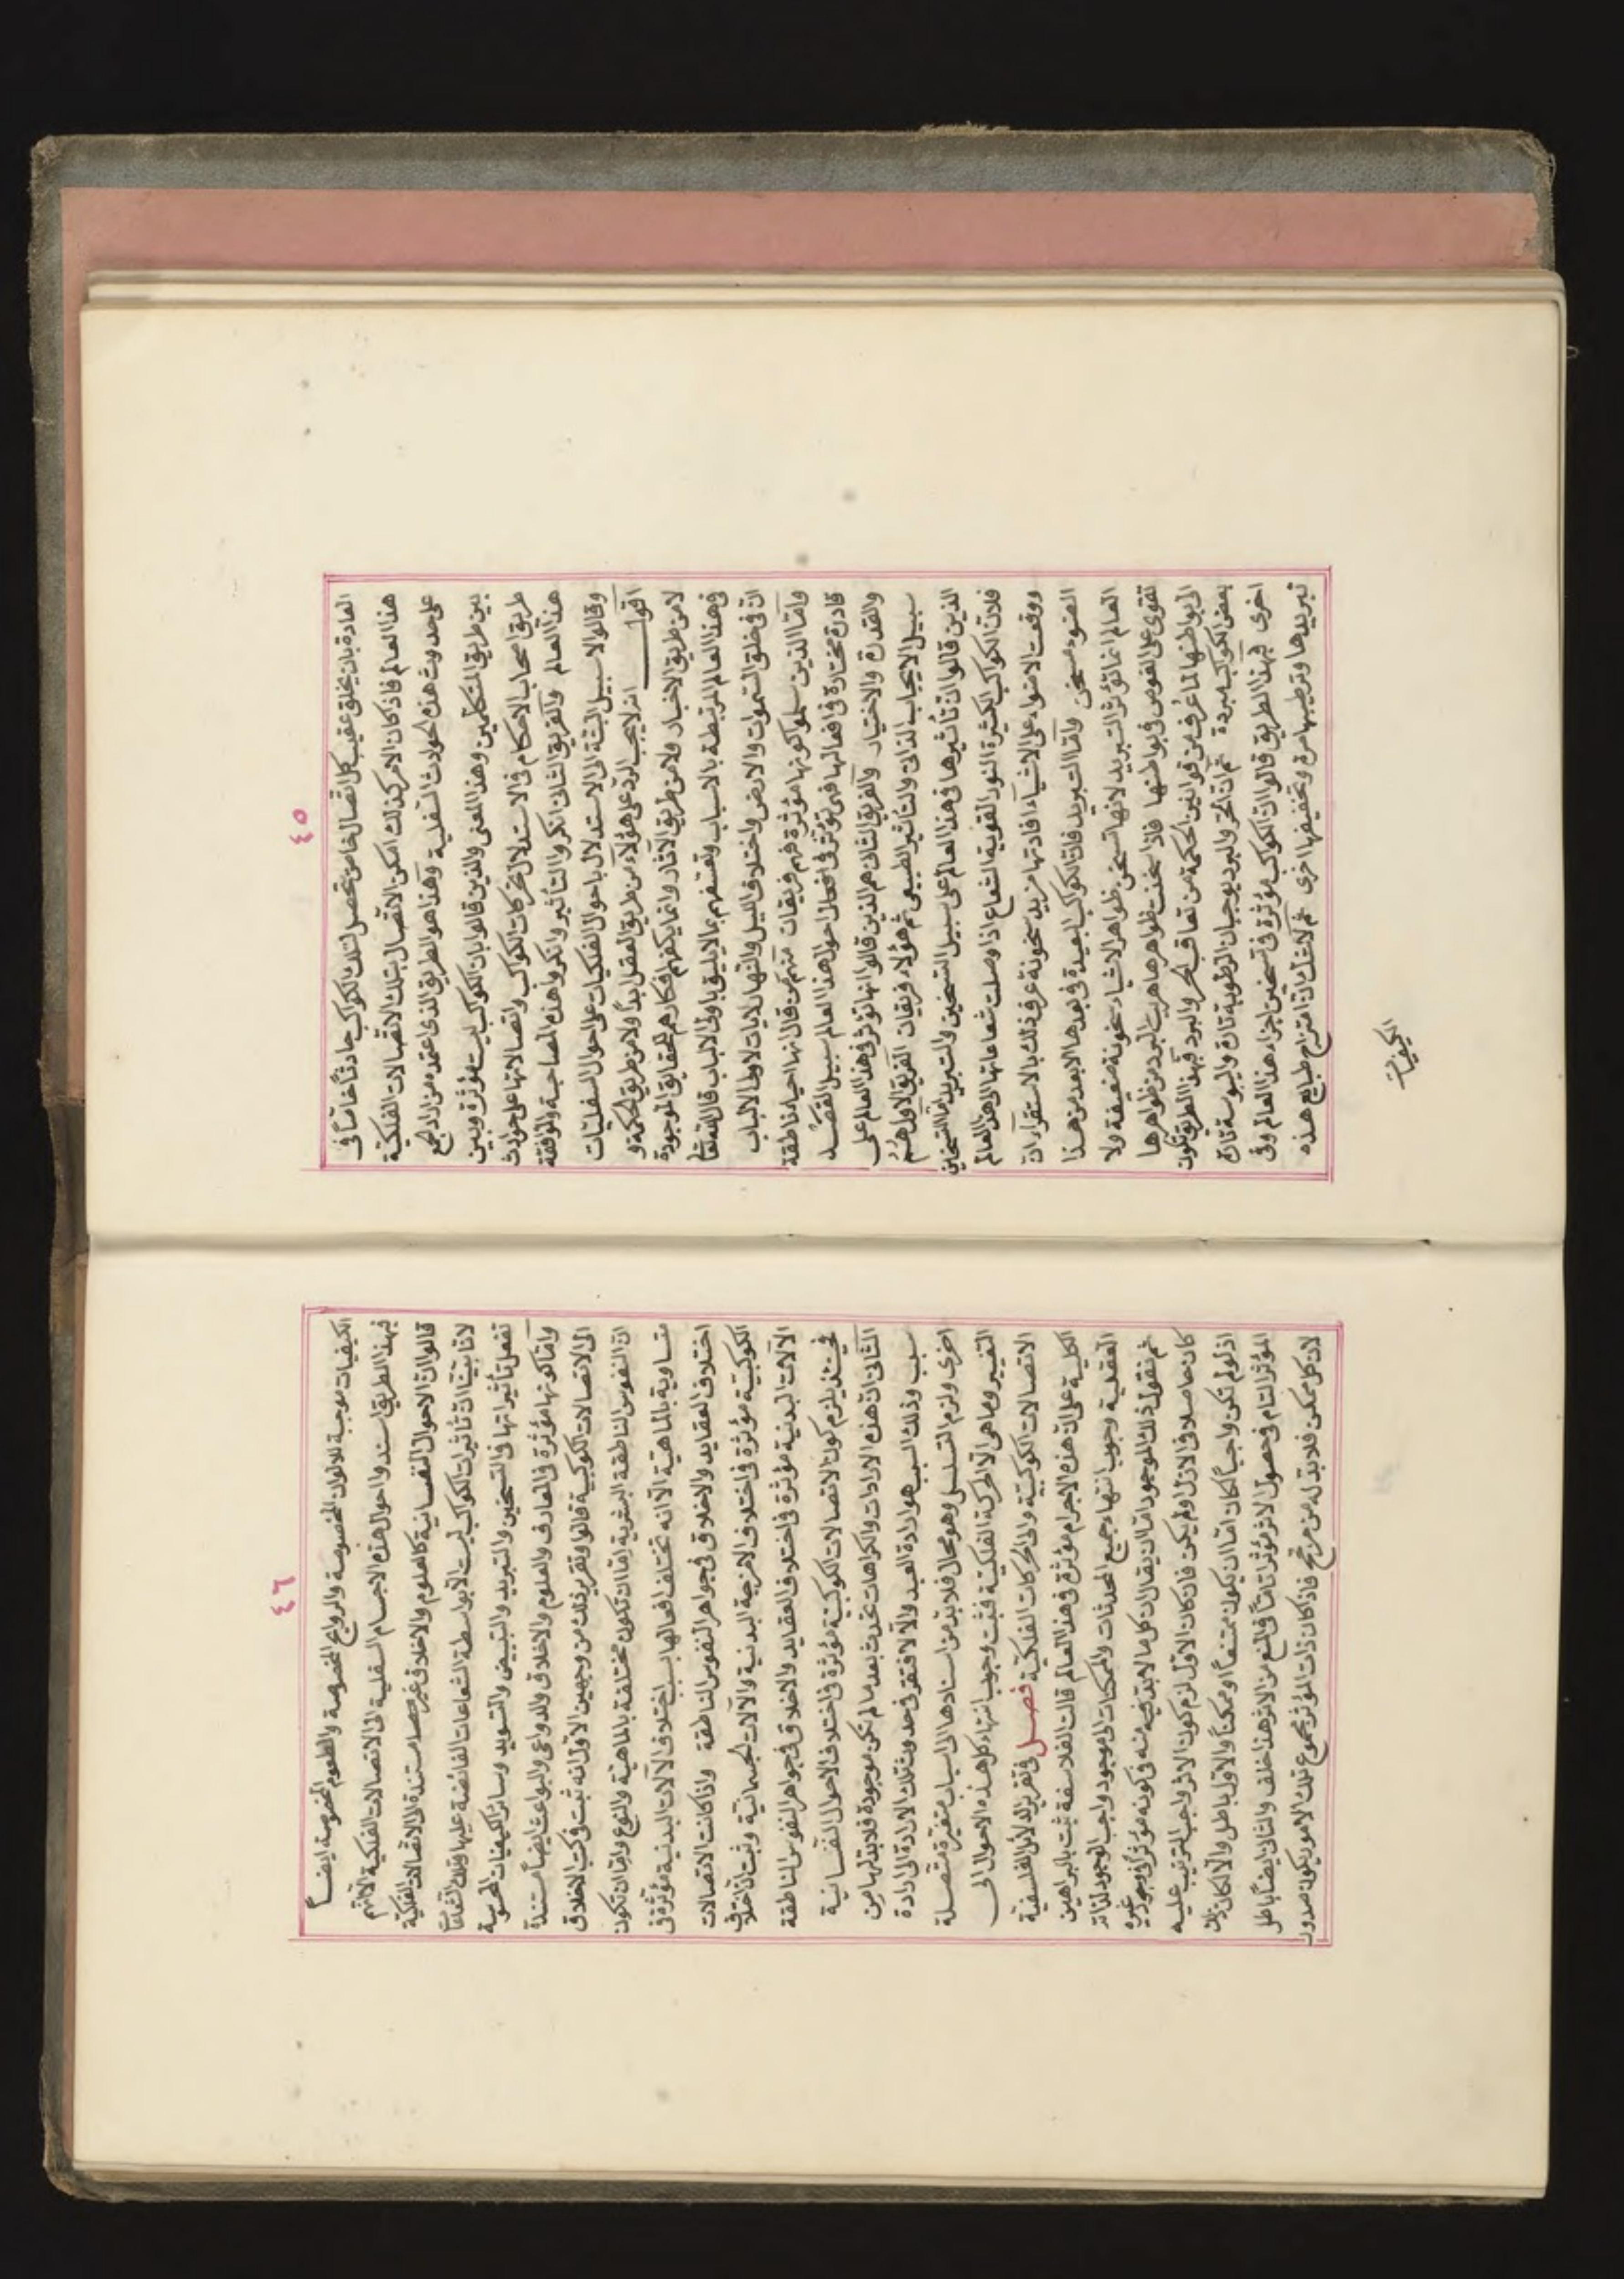 ٤٥
العادة بان يخلق عقيب كل اتصال خاص يحصل لتلك الكواكب حادثا خاصا فى
هذا العالم فاذا كان الامر كذلك امكن الاتصال بتلك الاتصالات الفلكية
على حدوث هذه الحوادث السفلية وهذا هو الطريق الذى اعتمده من اراد الجمع
بين طريق المتكلمين وهذا المعنى والذين قالوا بان الكواكب ليست مؤثرة وبين
طريق اصحاب الاحكام فى الاستدلال بحركات الكواكب واتصالاتها على حوادث
هذا العالم والفريق الثانى انكروا التأثير وانكروا هذه المصاحبة والموافقة
وقالوا لا سبيل البتة الى الاستدلال باحوال الفلكيات على احوال السفليات
اقول انه لا يجب الرد على هؤلاء من طريق العقل ابدا ولا من طريق الحكمة و
لا من طريق الاخبار ولا من طريق الآثار وانما يكفهم افكارهم الحقايق الموجودة
فى هذا العالم المرتبطة بالاسباب وتعسفهم بما لا يليق باولى الالباب قال الله تعالى
ان فى خلق السموات والارض واختلاف الليل والنهار لايات لاولى الالباب
واما الذين سلموا كونها مؤثرة فهم فريقان منهم من قال انها احياء ناطقة
قادرة مختارة فى افعالها فهى تؤثر فى افعال احوال هذا العالم سبيل القصد
والقدرة والاختيار والفريق الثانى هم الذين قالوا انها تؤثر فى هذا العالم على
سبيل الايجاب الذاتى والتأثير الطبيعى ثم هؤلاء فريقان الفريق الاول هم
الذين قالوا ان تأثيرها فى هذا العالم على سبيل التسخين والتبريد اما التسخين
فلان الكواكب الكثيرة النور القوية الشعاع اذا وصلت شعاعاتها الى هذا العالم
ووقعت الاضواء على الاشياء افادتها مزيد سخونة عرف ذلك بالاستقراء ان
الضوء مسخن واما التبريد فلان الكواكب البعيدة فى بعدها الابعد من هذا
العالم انما تؤثر التبريد لانها تسخن ظواهر الاشياء سخونة ضعيفة ولا
تقوى على الغوص فى بواطنها فاذا سخنت ظواهرها هربت البرد من ظواهرها
الى بواطنها لما عرف من قوانين الحكمة من تعاقب الحر والبرد فبهذا الطريق تكون
بعض الكواكب مبردة ثم ان الحر والبرد يوجبان الرطوبة تارة واليبوسة تارة
اخرى فبهذا الطريق قالوا ان الكواكب مؤثرة فى تسخين اجزاء هذا العالم وفى
تبريدها وترطيبها مرة وتجفيفها اخرى ثم لا شك ان امتزاج طبايع هذه
الكيفيات
٤٦
الكيفيات موجبة للالوان المخصوصة والروايح المخصوصة والطعوم المخصوصة ايضا
فبهذا الطريق اسندوا احوال هذه الاجسام السفلية الى الاتصالات الفلكية ثم انهم
قالوا ان الاحوال النفسانية كالعلوم والاخلاق غير مستندة الى الاتصالات الفلكية
لانا بينا ان تأثيرات الكواكب ليست الا بواسطة الشعاعات الفائضة عليها وتلك الشعاعات
تفعل تأثيراتها فى التسخين والتبريد والتبييض والتسويد وسائر الكيفيات المحسوسة
واما كونها مؤثرة فى المعارف والعلوم والاخلاق والدواعى والبواعث ايضا مستندة
الى الاتصالات الكوكبية قالوا وتقرير ذلك من وجهين الاول انه ثبت فى كتب الاخلاق
ان النفوس الناطقة البشرية اما ان تكون مختلفة بالماهية والنوع واما ان تكون
متساوية بالماهية الا انه تختلف افعالها بسبب اختلاف الآلات البدنية مؤثرة فى
اختلاف العقايد والاخلاق فى جواهر النفوس الناطقة واذا كانت الاتصالات
الكوكبية مؤثرة فى اختلاف الامزجة البدنية والآلات الجسمانية وثبت ان اختلاف
الآلات البدنية مؤثرة فى اختلاف العقايد والاخلاق فى جواهر النفوس الناطقة
فحينئذ يلزم كون الاتصالات الكوكبية مؤثرة فى اختلاف الاحوال النفسانية
الثانى ان هذه الارادات والكراهات تحدث بعد ما لم تكن موجودة فلا بد لها من
سبب وذلك السبب هو ارادة العبد والا لافتقر فى حدوث تلك الارادة الى ارادة
اخرى ولزم التسلسل وهو محال فلا بد من اسنادها الى اسباب متغيرة متصلة
التغيير وما هى الا الحركة الفلكية فثبت وجوب انتهاء كل هذه الاحوال الى
الاتصالات الكوكبية والى الحركات الفلكية فصل فى تقرير الدلائل الفلسفية
الكلية على ان هذه الاجرام مؤثرة فى هذا العالم قالت الفلاسفة ثبت بالبراهين
العقلية وجوب انتهاء جميع المحدثات والممكنات الى موجود واجب الوجود لذاته
ثم نقول ذلك الموجود اما ان يقال ان كل ما لا بد فيه منه فى كونه مؤثرا فى وجود غيره
كان حاصلا فى الازل او لم يكن فان كان الاول لزم كون الاثر واجب الترتيب عليه
اذ لو لم تكن واجبا لكان اما ان يكون ممتنعا او ممكنا والاول باطل والا لكان ذلك
المؤثر التام فى حصول الاثر مؤثرا تاما فى المنع من الاثر هذا خلف والثانى ايضا باطل
لان كل ممكن فلا بد له من مرجح فاذا كان ذات المؤثر مجموع تلك الامور يكون صدور